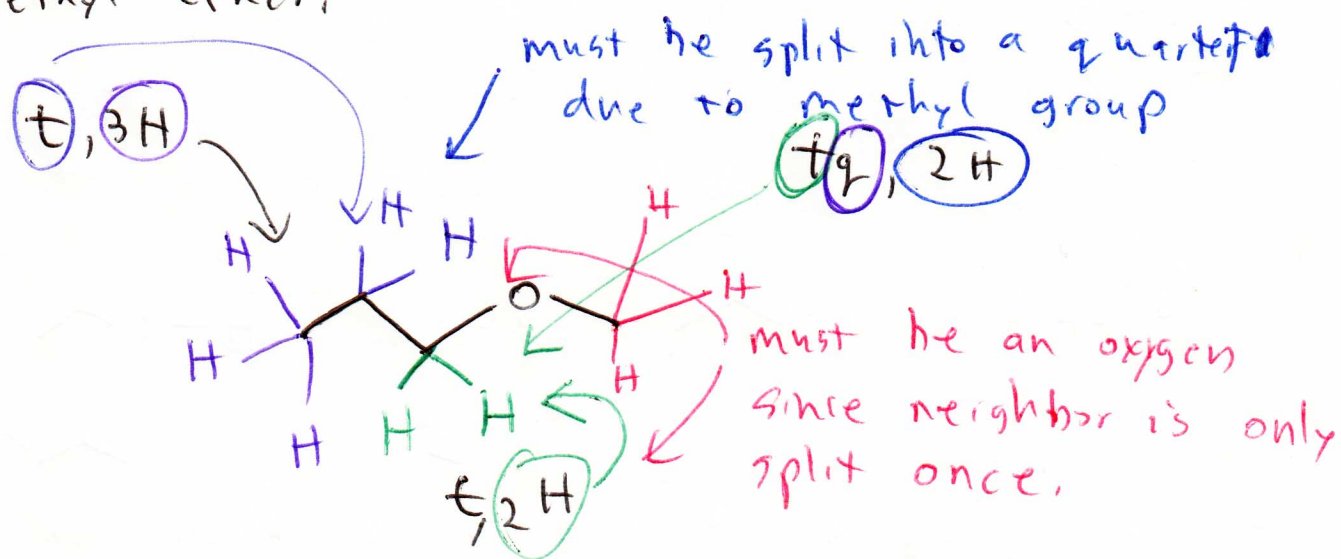 must be split into a quartet
due to methyl group
t, 3H
tq, 2H
H
H
H
H
H
O
H
H
H
H
H
must be an oxygen
since neighbor is only
split once.
t, 2H